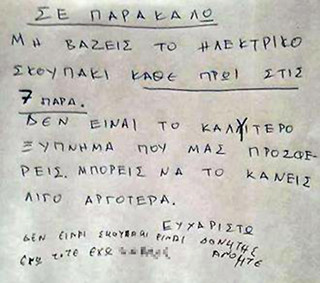 ΣΕ ΠΑΡΑΚΑΛΟ
ΜΗ ΒΑΖΕΙΣ ΤΟ ΗΛΕΚΤΡΙΚΟ
ΣΚΟΥΠΑΚΙ ΚΑΘΕ ΠΡΩΙ ΣΤΙΣ
7 ΠΑΡΑ.
ΔΕΝ ΕΙΝΑΙ ΤΟ ΚΑΛΥΤΕΡΟ
ΞΥΠΝΗΜΑ ΠΟΥ ΜΑΣ ΠΡΟΣΦΕ-
ΡΕΙΣ. ΜΠΟΡΕΙΣ ΝΑ ΤΟ ΚΑΝΕΙΣ
ΛΙΓΟ ΑΡΓΟΤΕΡΑ.
ΕΥΧΑΡΙΣΤΩ
ΔΕΝ ΕΙΝΑΙ ΣΚΟΥΠΑΚΙ ΕΙΝΑΙ ΔΟΝΗΤΗΣ
ΤΟΤΕ ΕΧΩ